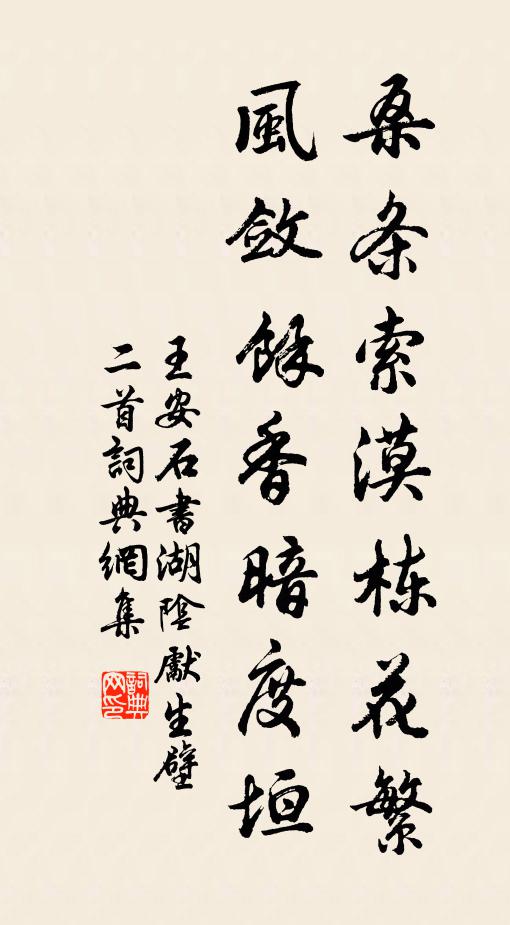 桑条索漠楝花繁
風斂餘香暗度垣
王安石書湖陰獻生壁
二首詞典網集
詞典网印